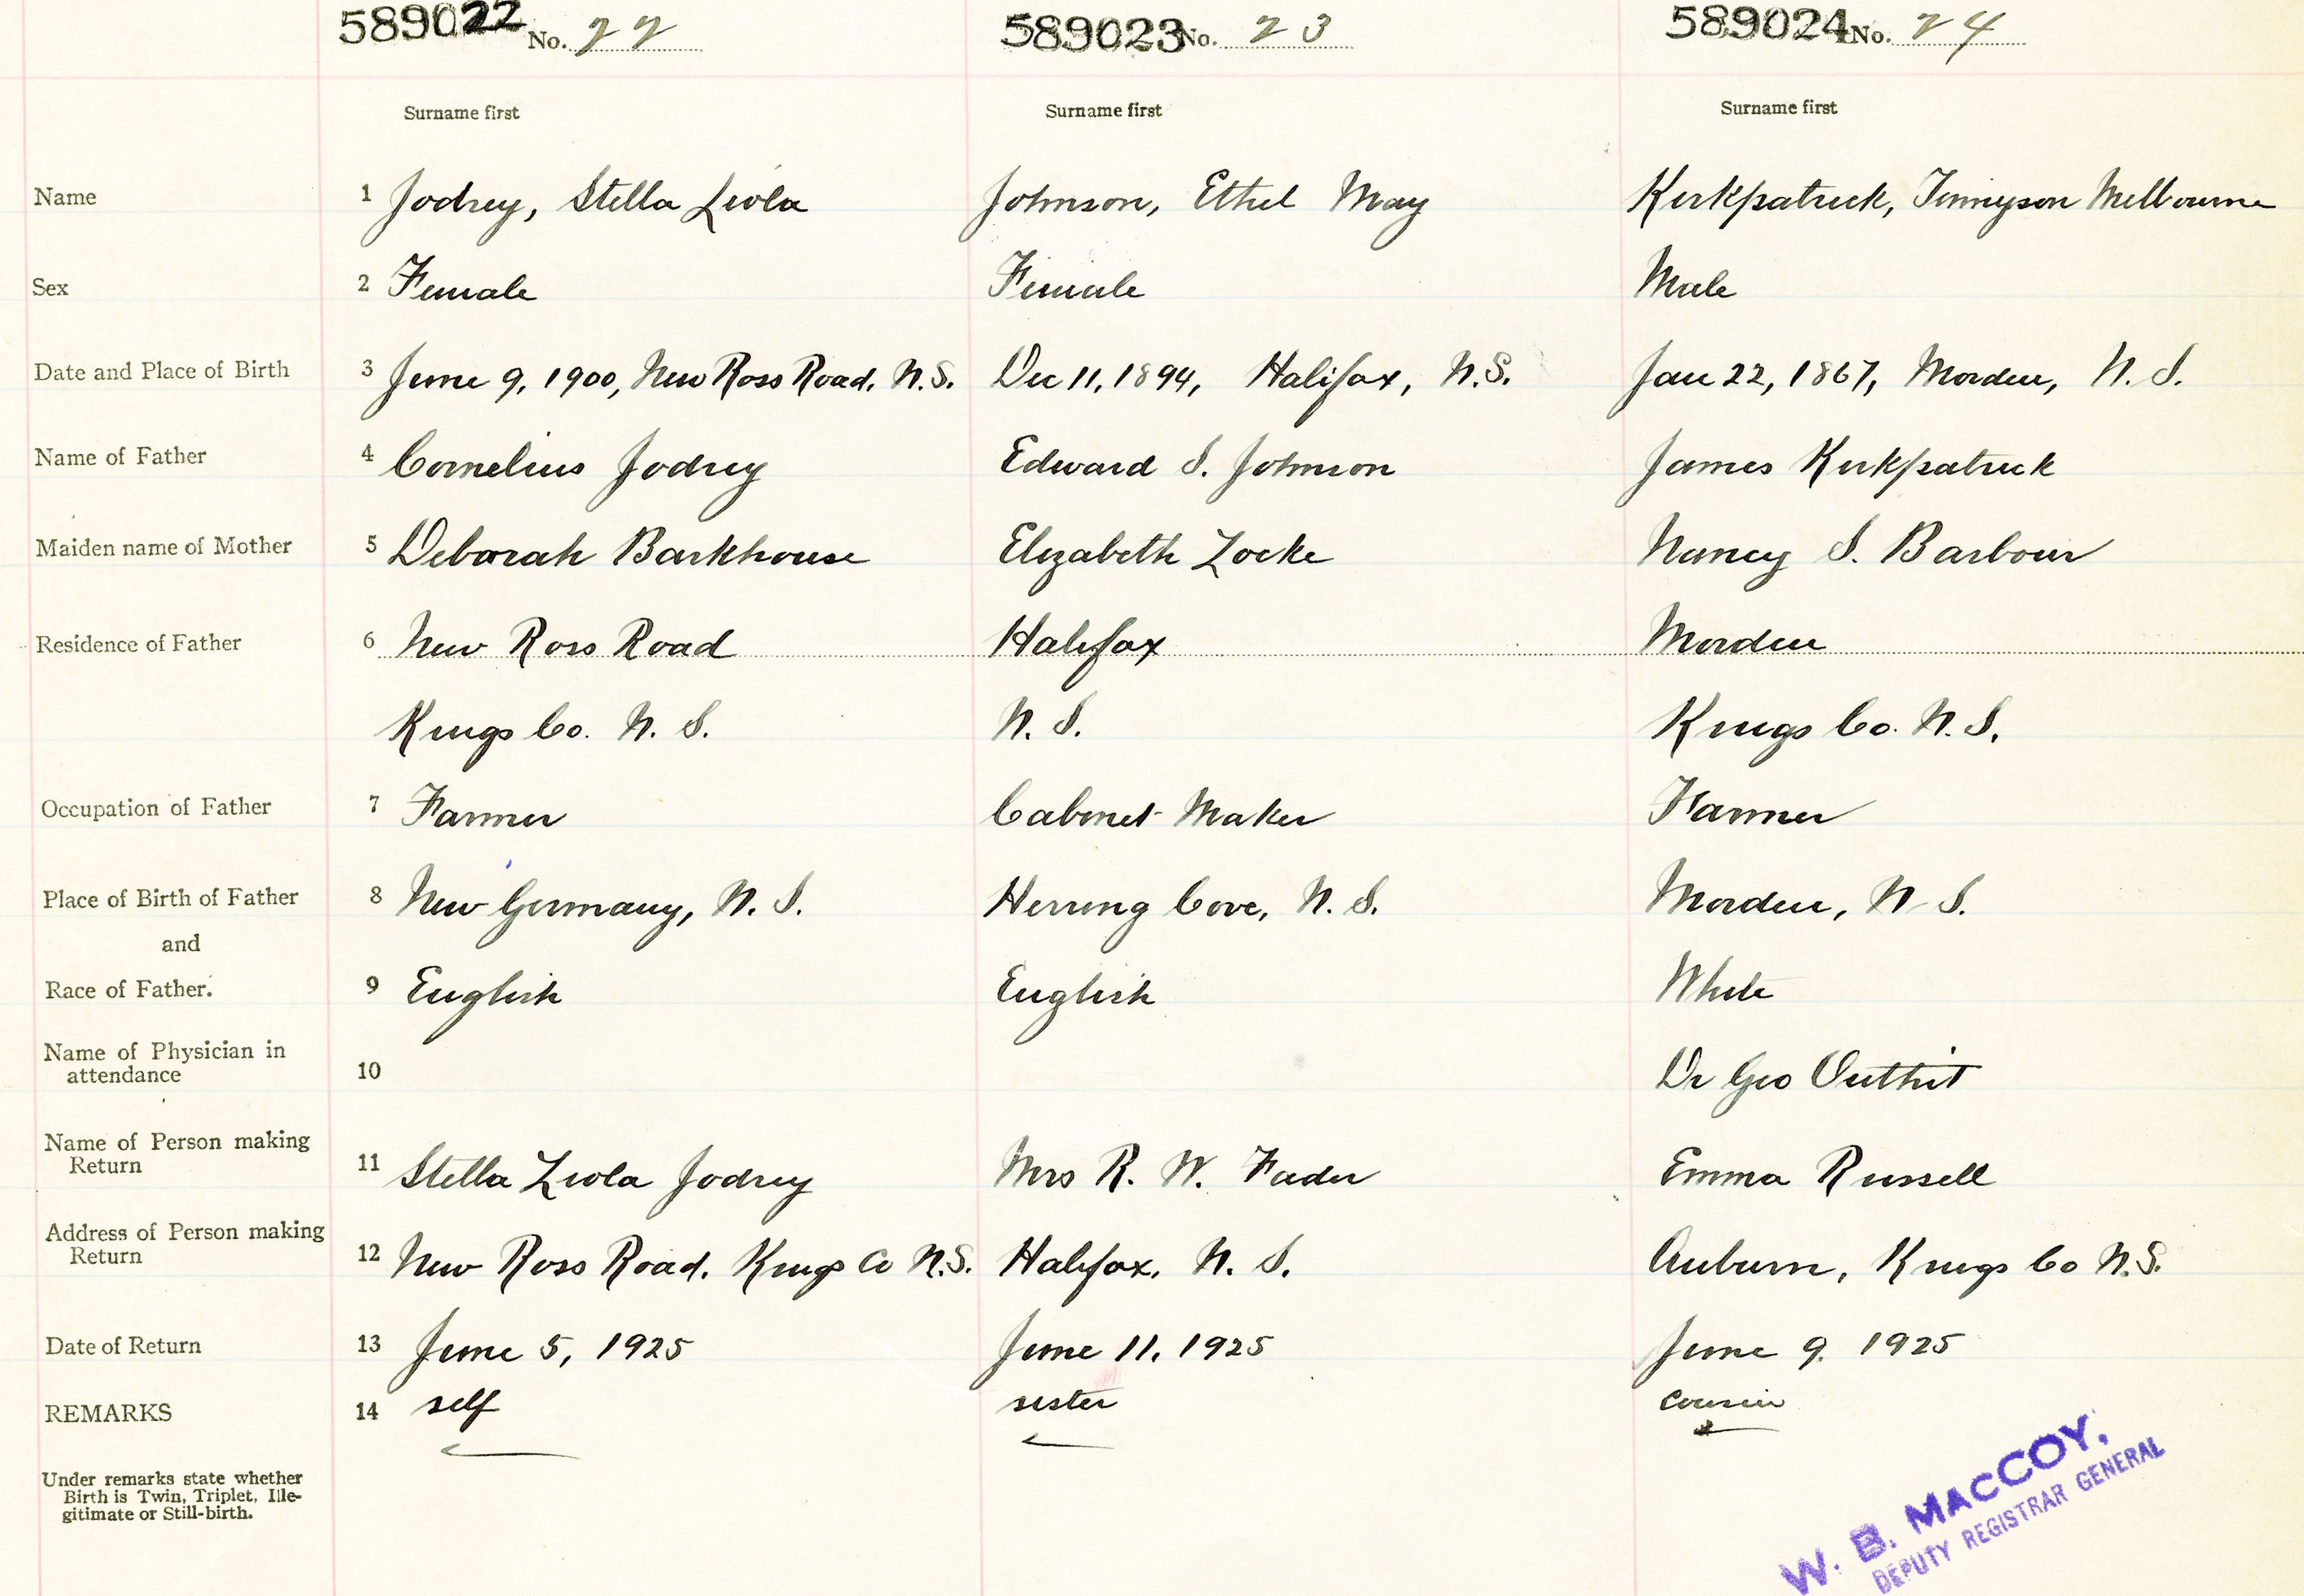 589022 No. 22 589023 No. 23 589024 No. 24
Surname first Surname first Surname first
Name 1 Jodrey, Stella Liola Johnson, Ethel May Kirkpatrick, Tennyson Melbourne
Sex 2 Female Female Male
Date and Place of Birth 3 June 9, 1900, New Ross Road, N.S. Dec 11, 1894, Halifax, N.S. Jan 22, 1867, Morden, N. S.
Name of Father 4 Cornelius Jodrey Edward S. Johnson James Kirkpatrick
Maiden name of Mother 5 Deborah Barkhouse Elizabeth Locke Nancy S. Barbour
Residence of Father 6 New Ross Road Halifax Morden
Kings Co. N. S. N. S. Kings Co. N. S.
Occupation of Father 7 Farmer Cabinet Maker Farmer
Place of Birth of Father 8 New Germany, N. S. Herring Cove, N. S. Morden, N S.
and
Race of Father. 9 English English White
Name of Physician in
attendance 10 Dr Geo Outhit
Name of Person making
Return 11 Stella Liola Jodrey Mrs R. W. Fader Emma Russell
Address of Person making
Return 12 New Ross Road, Kings Co N.S. Halifax, N. S. Auburn, Kings Co N.S.
Date of Return 13 June 5, 1925 June 11, 1925 June 9. 1925
REMARKS 14 self sister cousin
Under remarks state whether
Birth is Twin, Triplet, Ille-
gitimate or Still-birth.
W. B. MACCOY,
DEPUTY REGISTRAR GENERAL